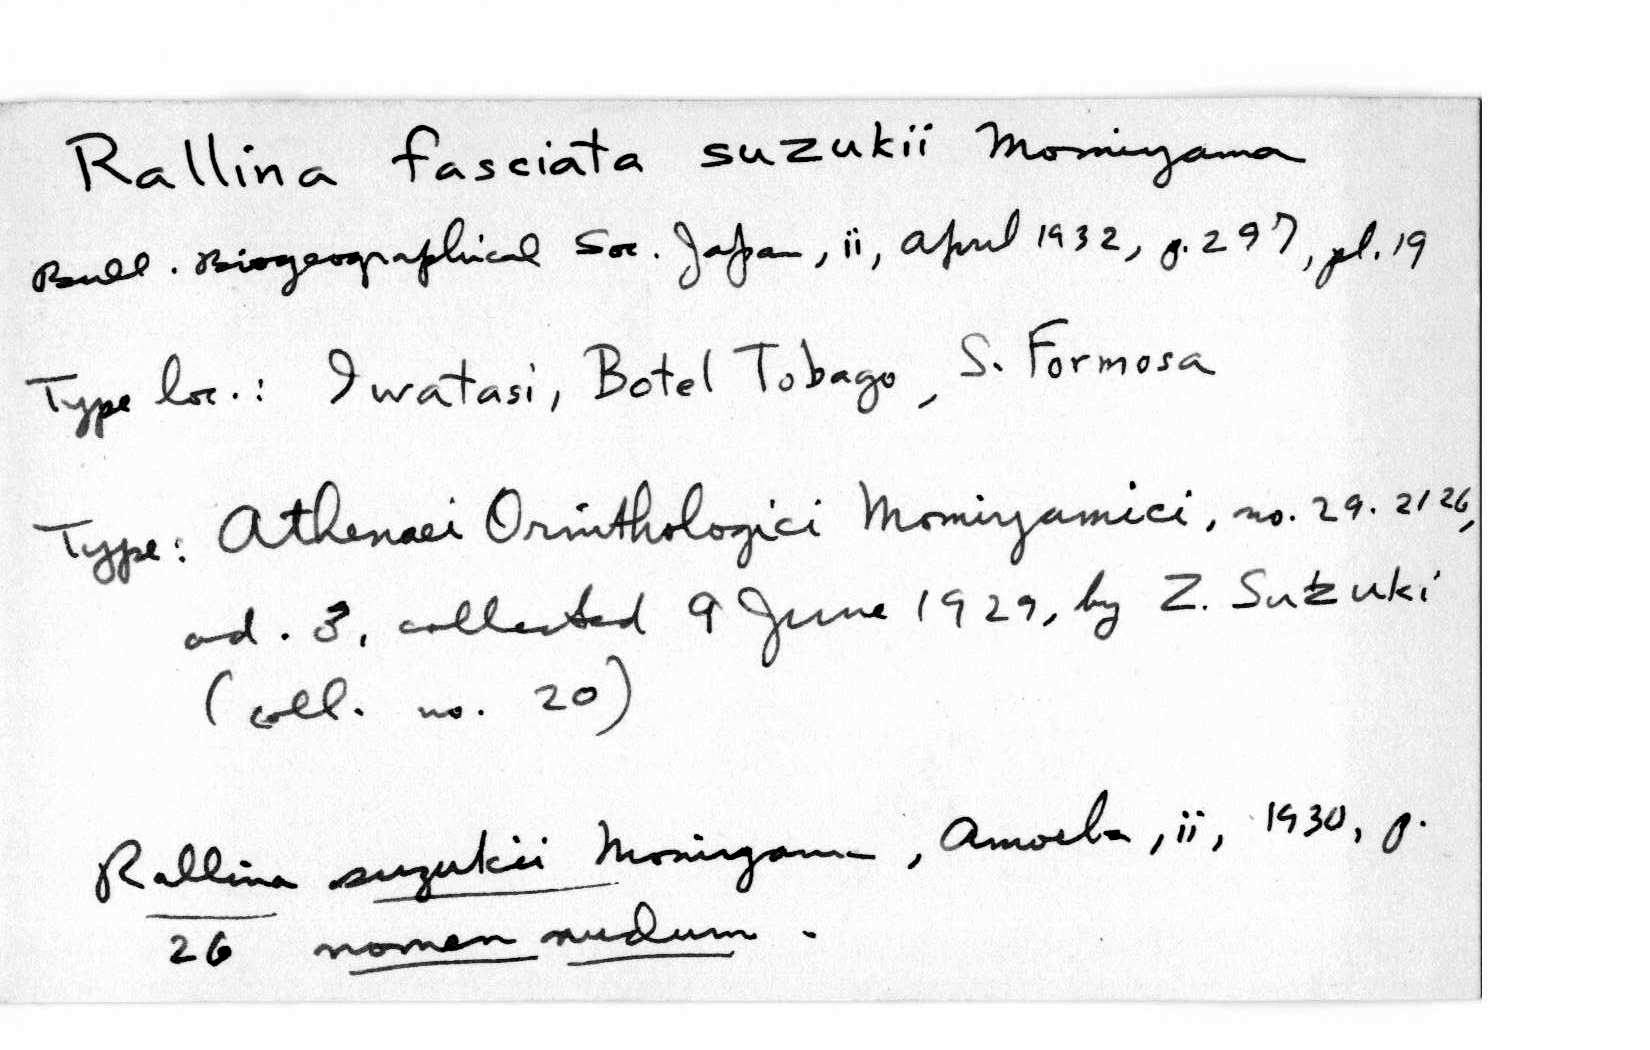 Rallina fasciata suzukii Momiyama
Bull. Biogeographical Soc. Japan, ii, April 1932, p. 297, pl. 19
Type loc.: Iwatasi, Botel Tobago, S. Formosa
Type: Athenaei Ornithologici Momiyamici, no. 29. 2126,
ad. ♂, collected 9 June 1929, by Z. Suzuki
(coll. no. 20)
Rallina suzukii Momiyama, Amoeba, ii, 1930, p.
26 nomen nudum.